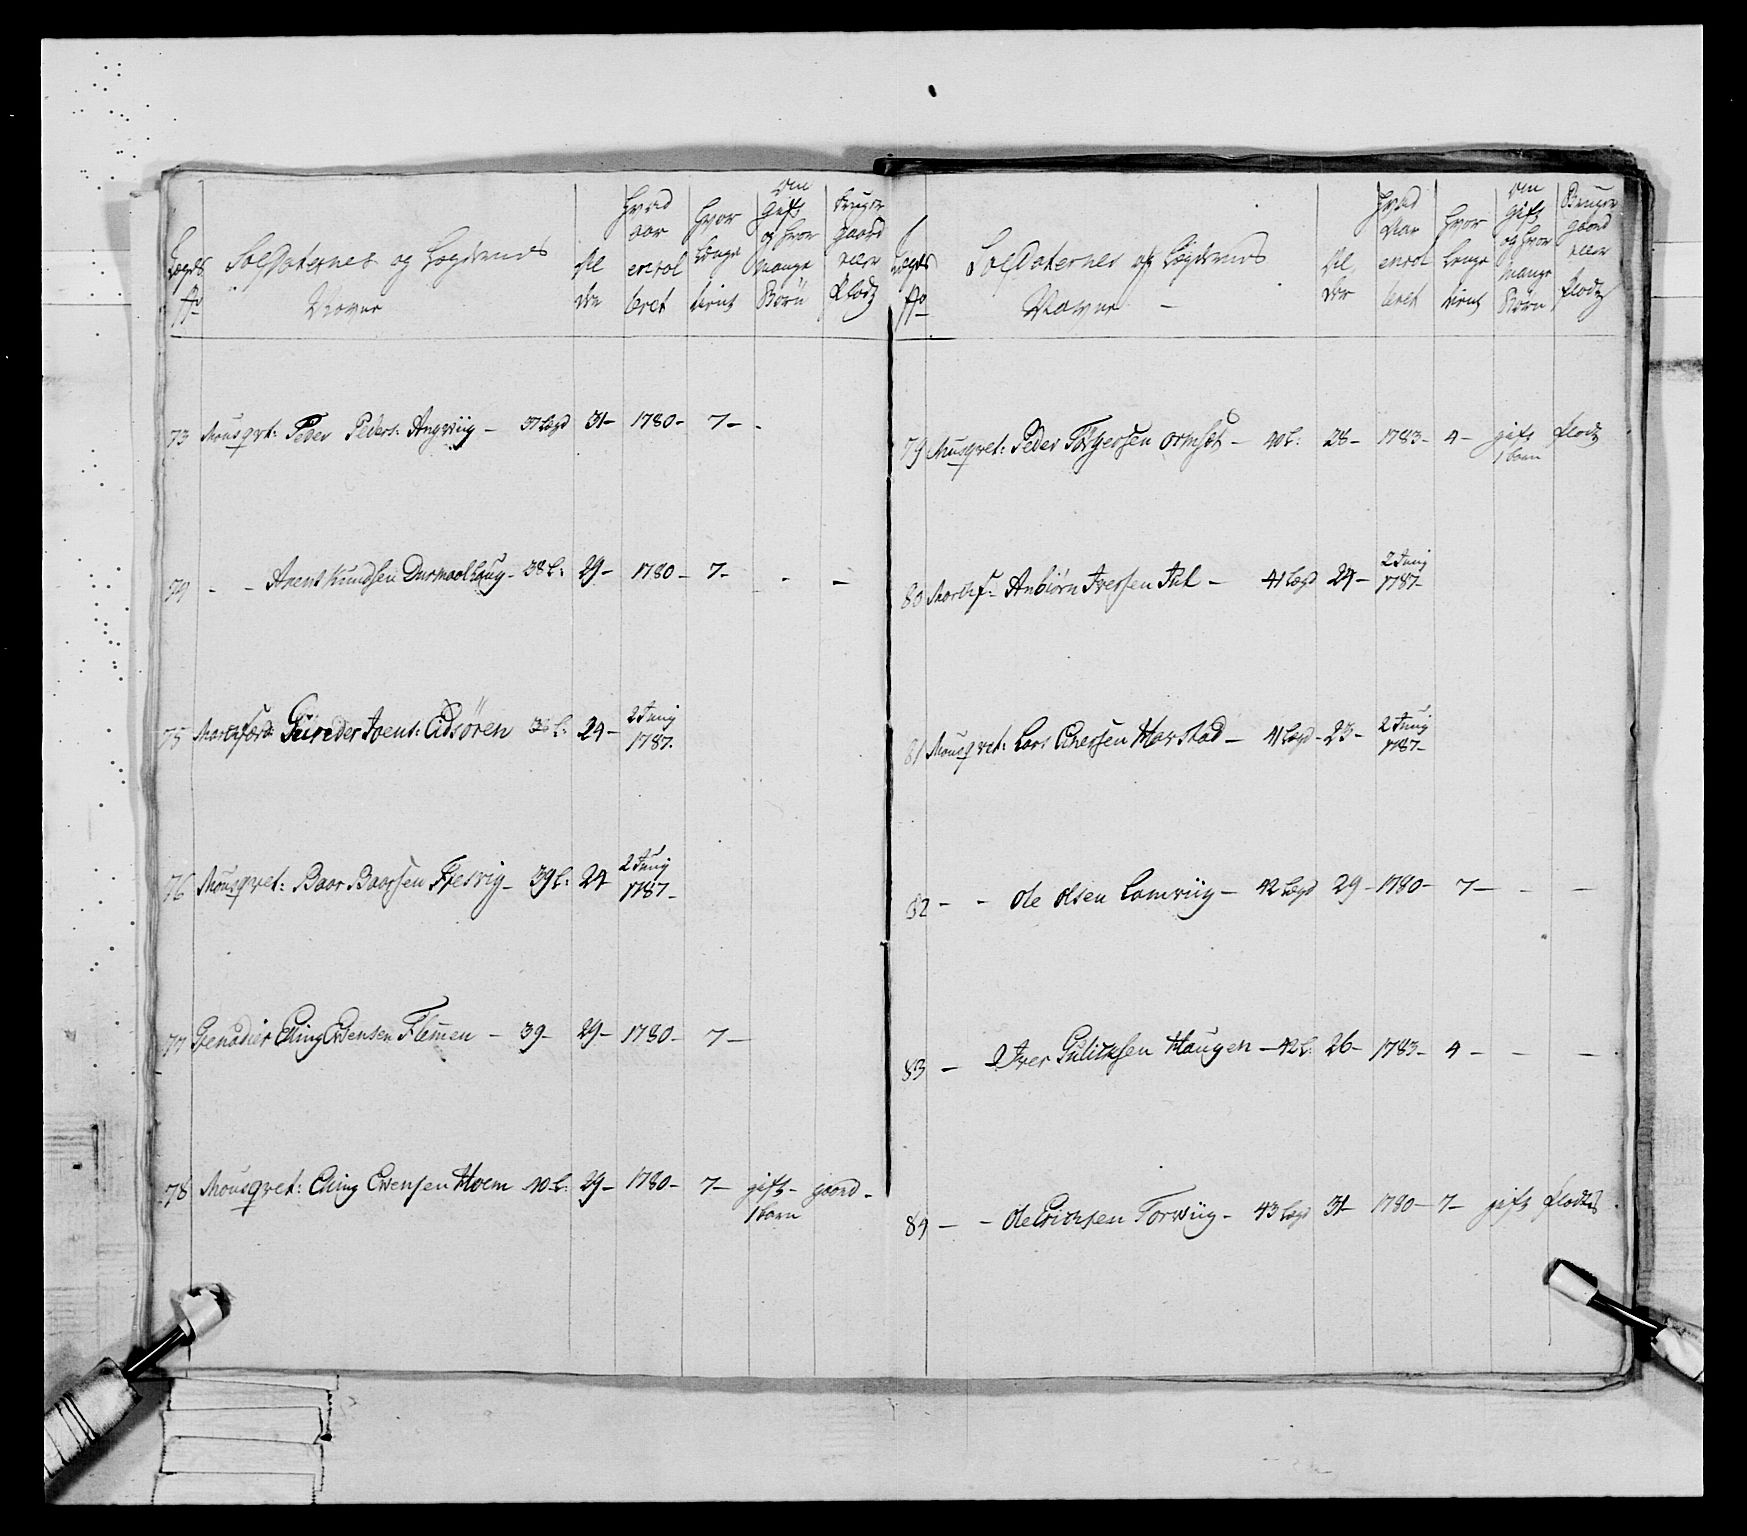 Lægds No
Soldaternes og Lægdernes Navne
Al der
Hvad aar enrol leret
Hvor Længe tient
Om Gift og hvor mange Børn
Bruger gaard eller Plads
73 Mousqvt: Peder Peders: Angviig – 37 Lægd 31 – 1780 – 7 –
79 – – Knudsen – 38 L: 29 – 1780 – 7 – – –
75 Eidsøren 38 L: 24 – 2 Junij 1787.
76 Mousqvet: Baar Baarsen – 39 L: 24 2 Junij 1787 –
77 Grenadier Elling Evensen Flemen – 39 – 29 – 1780 – 7 –
78 Mousqvet: Elling Evensen Hoem 40 L: 29 – 1780 – 7 – gift – gaard –
1 barn
Lægds No
Soldaternes og Lægdernes Navne –
Al der
Hvad Aar enrol leret
Hvor lenge tient
Om Gift og hvor mange Børn
Bruger gaard eller Plads
79 Musqvet: Peder Ormset – 40 L: 28 – 1783 – 4 – gift plads
1 barn
80 Iversen – 41 Lægd 24 – 2 Junij 1787 –
81 Mousqvet: Lars Harstad – 41 Lægd – 23 – 2 Junij 1787 –
82 – – Ole Olsen Lamviig – 42 Lægd 29 – 1780 – 7 – – –
83 – Iver Haugen – 42 L: 26 – 1783 – 4 – – –
84 – – Ole Erichsen Torviig – 43 Lægd 31 – 1780 – 7 – gift